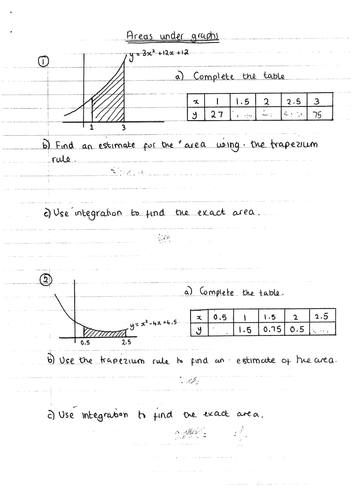 Areas under graphs
① y = 3x² +12x +12
1 3
a) Complete the table
x 1 1.5 2 2.5 3
y 27 75
b) Find an estimate for the area using the trapezium
rule.
c) Use integration to find the exact area.
② y = x² -4x +4.5
0.5 2.5
a) Complete the table.
x 0.5 1 1.5 2 2.5
y 1.5 0.75 0.5
b) Use the trapezium rule to find an estimate of the area.
c) Use integration to find the exact area.